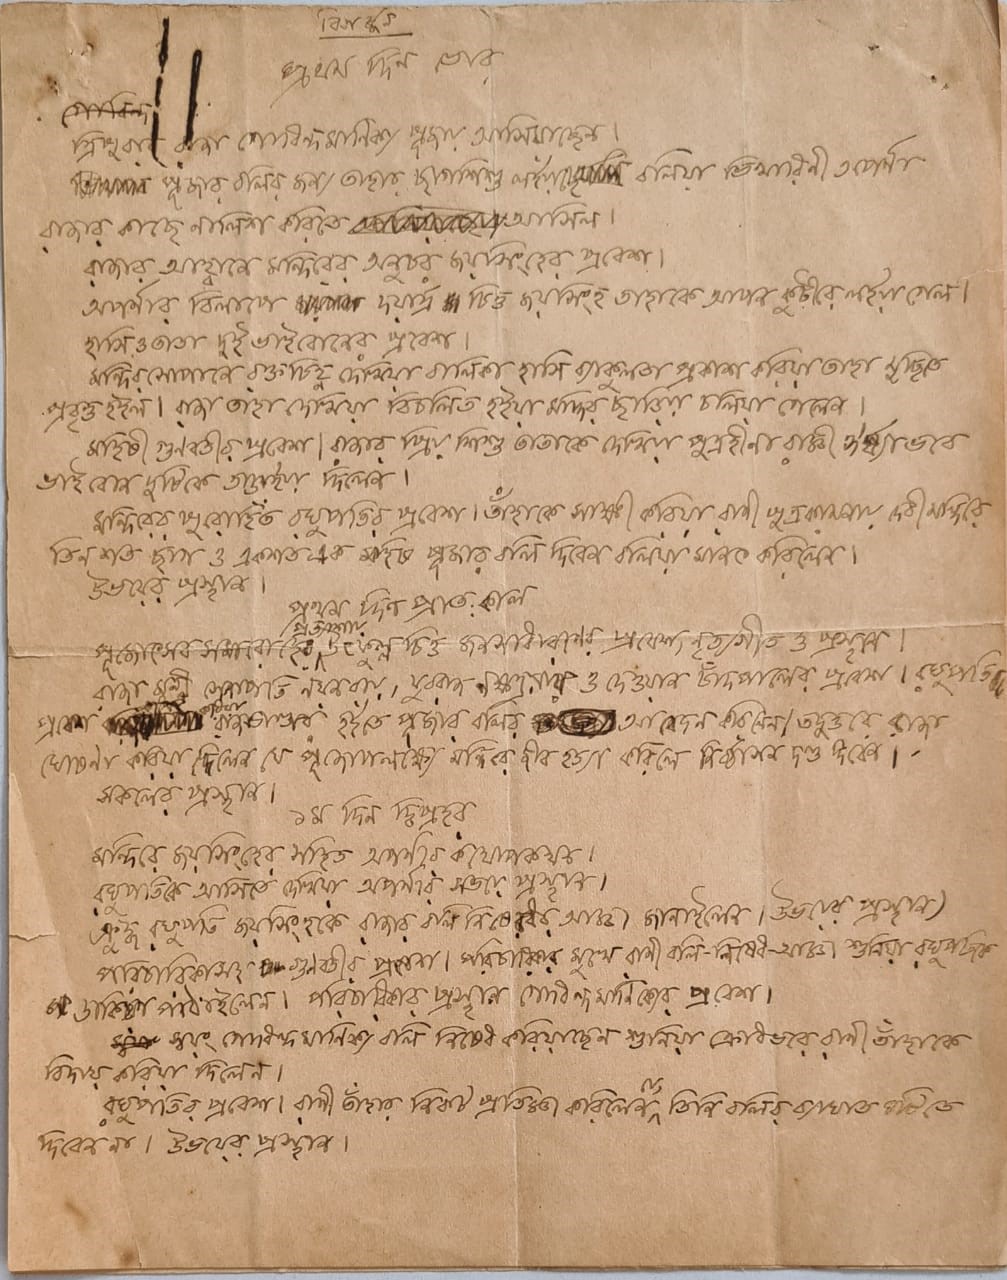 বিসর্জন
প্রথম দিন ভোর
গোবিন্দ
ত্রিপুরার রাজা গোবিন্দমাণিক্য পূজায় আসিয়াছেন।
পূজার বলির জন্য তাহার ছাগশিশু লইয়াছে বলিয়া ভিখারিনী অপর্ণা
রাজার কাছে নালিশ করিতে আসিল।
রাজার আহ্বানে মন্দিরের অনুচর জয়সিংহের প্রবেশ।
অপর্ণার বিলাপে দয়ার্দ্র চিত্ত জয়সিংহ তাহাকে আপন কুটীরে লইয়া গেল।
হাসি ও তাতা দুই ভাইবোনের প্রবেশ।
মন্দির সোপানে রক্তচিহ্ন দেখিয়া বালিকা হাসি ব্যাকুলতা প্রকাশ করিয়া তাহা মুছিতে
প্রবৃত্ত হইল। রাজা তাহা দেখিয়া বিচলিত হইয়া মন্দির ছাড়িয়া চলিয়া গেলেন।
মহিষী গুণবতীর প্রবেশ। রাজার প্রিয় শিশু তাতাকে দেখিয়া পুত্রহীনা রাজ্ঞী ঈর্ষ্যাভরে
ভাই বোন দুটিকে তাড়াইয়া দিলেন।
মন্দিরের পুরোহিত রঘুপতির প্রবেশ। তাঁহাকে সাক্ষী করিয়া রাণী পুত্রকামনায় দেবী মন্দিরে
তিন শত ছাগ ও একশত এক মহিষ পূজার বলি দিবেন বলিয়া মানৎ করিলেন।
উভয়ের প্রস্থান।
প্রথম দিন প্রাতঃকাল
পূজোৎসব সমারোহের প্রত্যাশায় উৎফুল্ল চিত্ত জনসাধারণের প্রবেশ, নৃত্যগীত ও প্রস্থান।
রাজা মন্ত্রী সেনাপতি নয়নরায়, যুবরাজ নক্ষত্ররায় ও দেওয়ান চাঁদপালের প্রবেশ। রঘুপতি
প্রবেশ করিয়া রাজভাণ্ডার হইতে পূজার বলির আবেদন করিলেন। তদুত্তরে রাজা
ঘোষণা করিয়া দিলেন যে পূজোপলক্ষ্যে মন্দিরে জীব হত্যা করিলে নির্ব্বাসন দণ্ড দিবেন।
সকলের প্রস্থান।
১ম দিন দ্বিপ্রহর
মন্দিরে জয়সিংহের সহিত অপর্ণার কথোপকথন।
রঘুপতিকে আসিতে দেখিয়া অপর্ণার সভয়ে প্রস্থান।
ক্রুদ্ধ রঘুপতি জয়সিংহকে রাজার বলি নিষেধের আজ্ঞা জানাইলেন। উভয়ের প্রস্থান।
পরিচারিকাসহ গুণবতীর প্রবেশ। পরিচারিকার মুখে রাণী বলি-নিষেধ-আজ্ঞা শুনিয়া রঘুপতিকে
ডাকিয়া পাঠাইলেন। পরিচারিকার প্রস্থান গোবিন্দমাণিক্যের প্রবেশ।
স্বয়ং গোবিন্দমাণিক্য বলি নিষেধ করিয়াছেন শুনিয়া ক্রোধভরে রাণী তাঁহাকে
বিদায় করিয়া দিলেন।
রঘুপতির প্রবেশ। রাণী তাঁহার নিকট প্রতিজ্ঞা করিলেন তিনি বলির ব্যাঘাত ঘটিতে
দিবেন না। উভয়ের প্রস্থান।